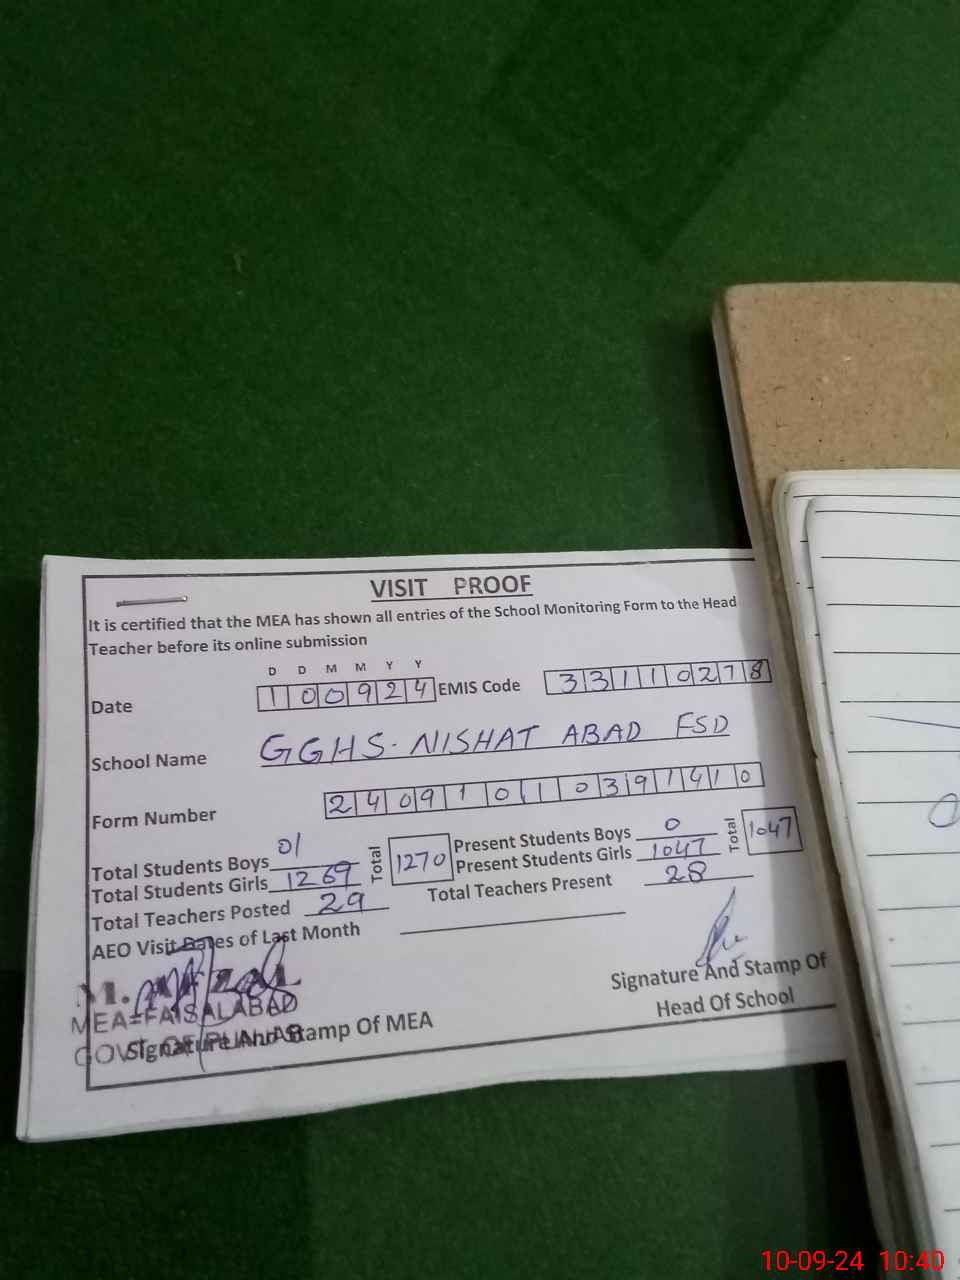 VISIT PROOF
It is certified that the MEA has shown all entries of the School Monitoring Form to the Head
Teacher before its online submission
D D M M Y Y
Date 100924 EMIS Code 33110278
School Name GGHS. NISHAT ABAD FSD
Form Number 24091010391410
Total Students Boys 01 Total 1270 Present Students Boys 0 Total 1047
Total Students Girls 1269 Present Students Girls 1047
Total Teachers Posted 29 Total Teachers Present 28
AEO Visit Dates of Last Month
M. AFZAL
MEA-FAISALABAD
GOVT. OF PUNJAB
Signature And Stamp Of MEA
Signature And Stamp Of
Head Of School
10-09-24 10:40